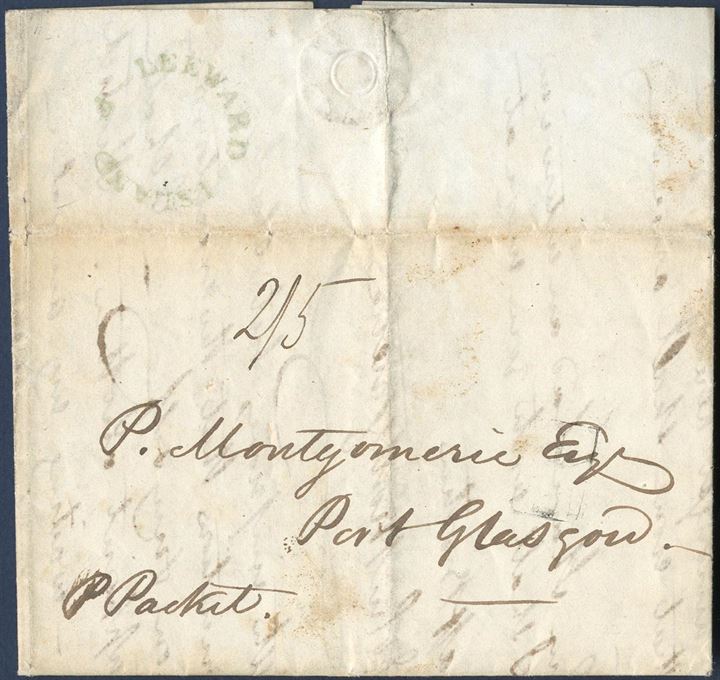 LEEWARD ISLAND S
2/5
P. Montgomerie Esqr
Port Glasgow.
P Packet.